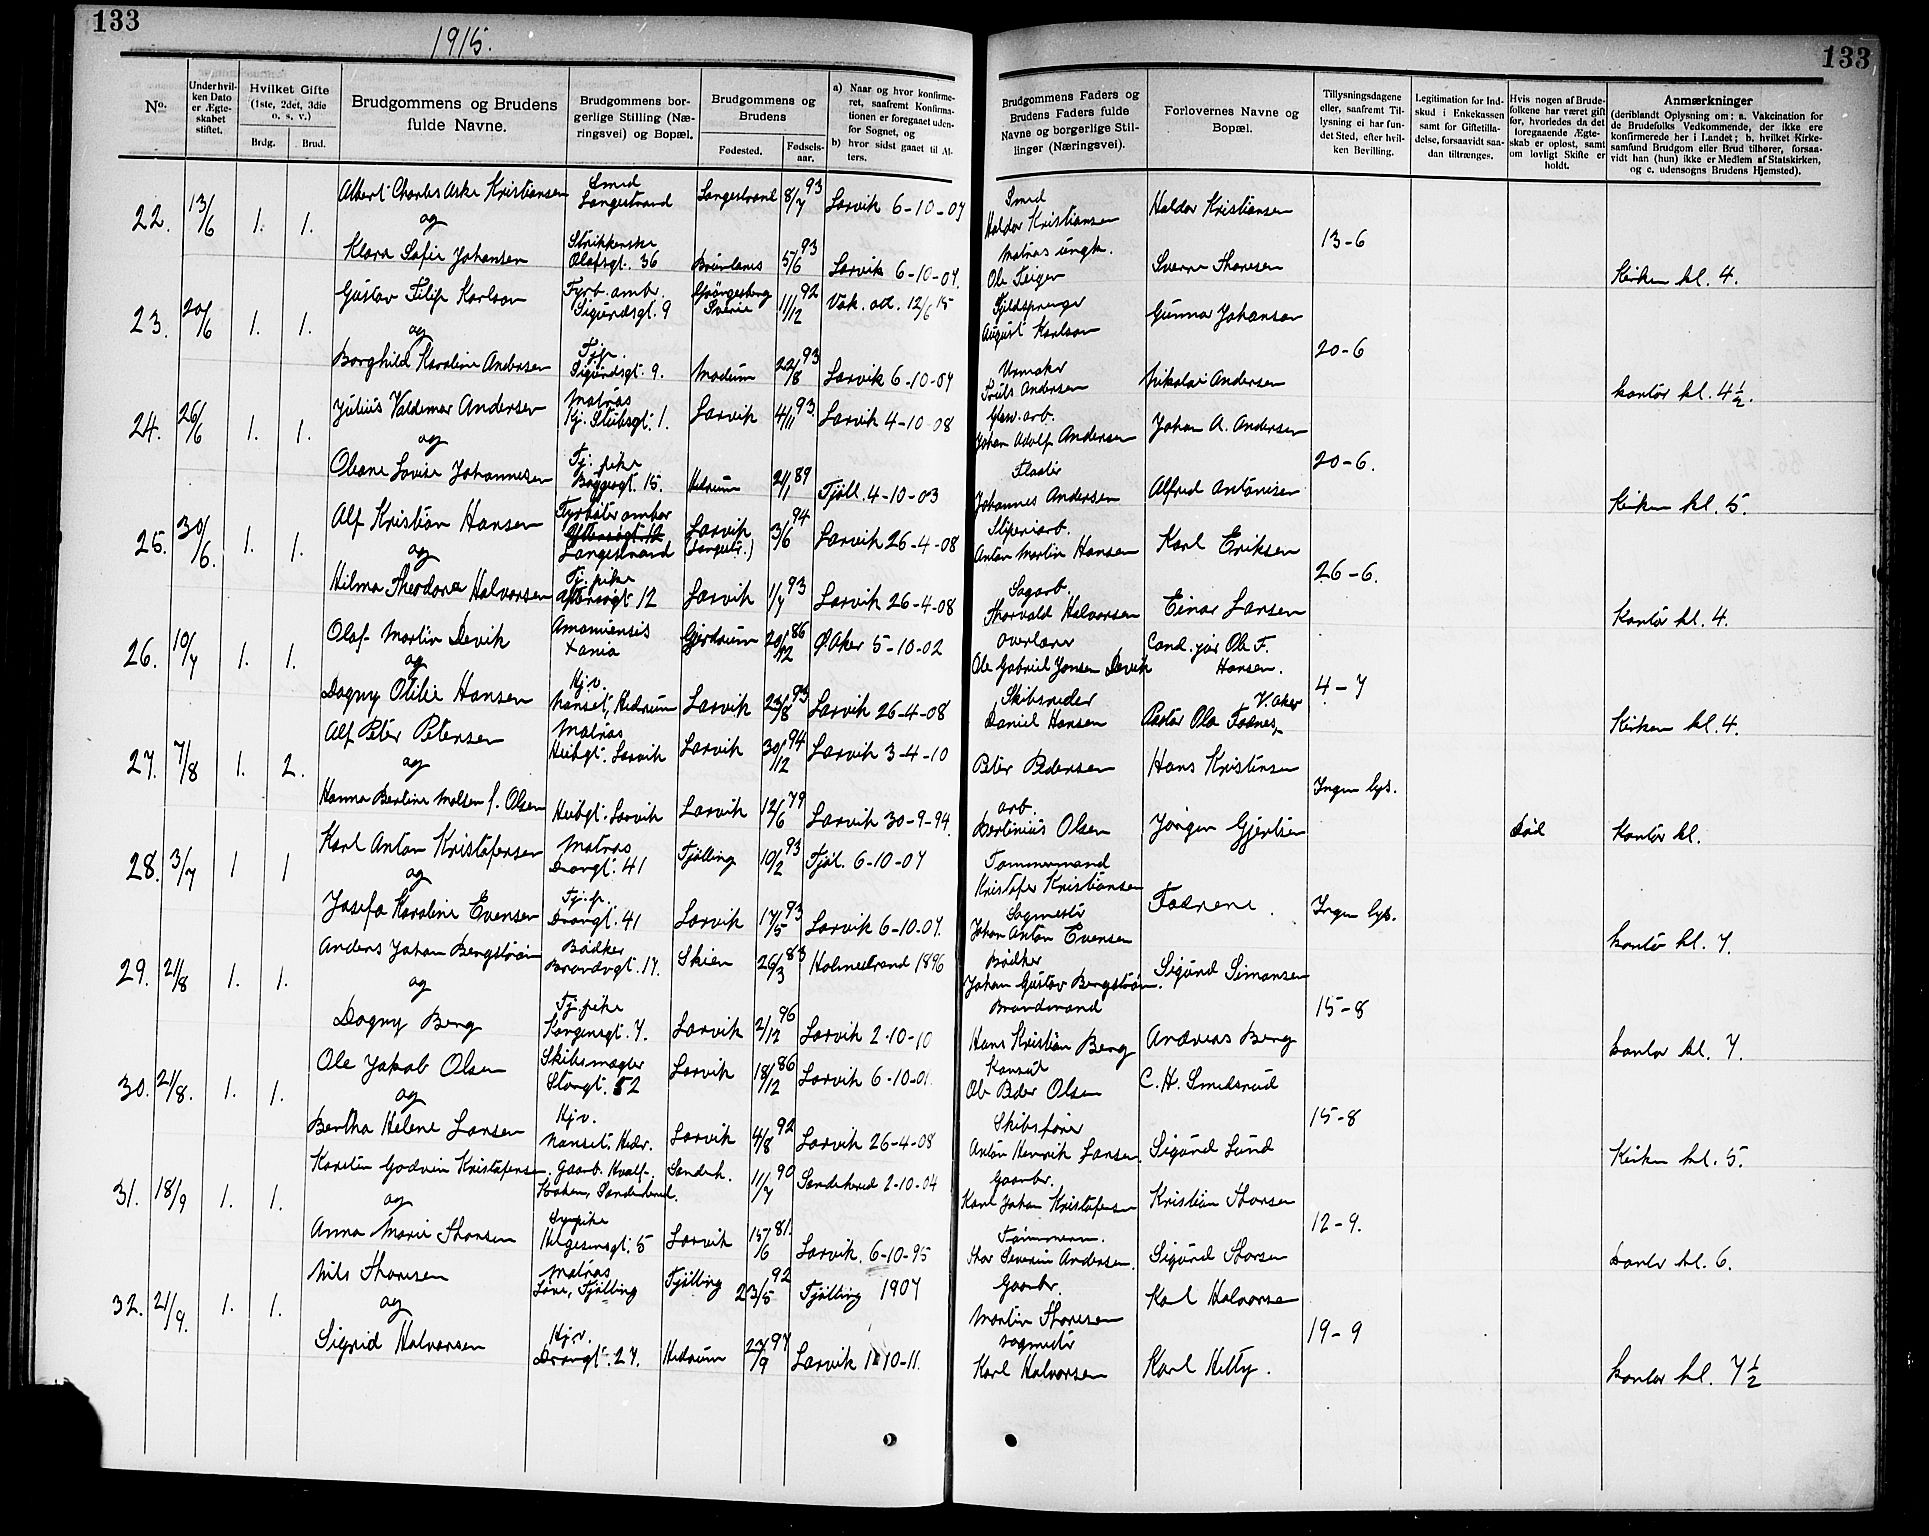 133
1915.
133
No.
Under hvil-
ken Dato
er Ægte-
skabet
stiftet.
Hvilket Gifte
(1ste, 2det, 3die
o. s. v.)
Brdg.
Brud.
Brudgommens og Brudens
fulde Navne.
Brudgommens bor-
gerlige Stilling (Næ-
ringsvei) og Bopæl.
Brudgommens og
Brudens
Fødested.
Fødsels-
aar.
a) Naar og hvor konfirme-
ret, saafremt Konfirma-
tionen er foregaaet uden-
for Sognet, og
b) hvor sidst gaaet til Al-
ters.
Brudgommens Faders og
Brudens Faders fulde
Navne og borgerlige Stil-
linger (Næringsvei).
Forlovernes Navne og
Bopæl.
Tillysningsdagene
eller, saafremt Til-
lysning ei har fun-
det Sted, efter hvil-
ken Bevilling.
Legitimation for Ind-
skud i Enkekassen
samt for Giftetilla-
delse, forsaavidt saa-
dan tiltrænges.
Hvis nogen af Brude-
folkene har været gift
før, hvorledes da det
foregaaende Ægte-
skab er opløst, samt
om lovligt Skifte er
holdt.
Anmærkninger
(deriblandt Oplysning om: a. Vakcination for
de Brudefolks Vedkommende, der ikke ere
konfirmerede her i Landet; b. hvilket Kirke-
samfund Brudgom eller Brud tilhører, forsaa-
vidt han (hun) ikke er Medlem af Statskirken,
og c. udensogns Brudens Hjemsted).
22. 13/6 1. 1. Albert Charles Aske Kristiansen Smed Langestrand Langestrand 8/7 93 Larvik 6-10-07 Smed Haldor Kristiansen Haldor Kristiansen
og 13-6
Klara Sofie Johansen Strikkerske Olafsgt. 36 Brunlanes 5/6 93 Larvik 6-10-07. Matros Ole Teigen Sverre Thoresen Kirken kl. 4.
23. 20/6 1. 1. Gustav Filip Karlson Fyrb. amb. Sigurdsgt. 9 Sverie 11/12 92 Vak. at. 12/6 15 Fjeldsprenger August Karlson Gunnar Johanson
og 20-6
Borghild Karoline Andersen Tjp. Sigurdsgt. 9. Modum 22/8 93 Larvik 6-10-07 Urmaker Truls Andersen Nikolai Andersen kontor kl. 4½.
24. 26/6 1. 1. Julius Valdemar Andersen Matros Kj. Stubsgt. 1. Larvik 4/11 93. Larvik 4-10-08 Glasv. arb. Johan Adolf Andersen Johan A. Andersen
og 20-6.
Oleane Lovise Johannesen Tj. pike Bøggegt. 15. Hedrum 21/1 89 Tjøll. 4-10-03 Johannes Andersen Alfred Antonisen Kirken kl. 5.
25. 30/6. 1. 1. Alf Kristian Hansen Fyrbøter ombor Langestrand Larvik (Langestr.) 3/6 94 Larvik 26-4-08 Støperiarb. Anton Martin Hansen Karl Eriksen
og 26-6.
Hilma Theodora Halvorsen Tj. pike 12 Larvik 1/7 93 Larvik 26-4-08 Sagarb. Thorvald Halvorsen Einar Larsen Kontor kl. 4.
26. 10/7 1. 1. Olaf Martin Devik Amanuensis Xania Gjerdrum 20/12 86 Ø. Aker 5-10-02 Overlærer Ole Gabriel Jonsen Devik Cand. jur Ole F. Hansen. V. Aker
og 4-7
Dagny Otilie Hansen Hj.v. Nanset, Hedrum Larvik 23/8 93 Larvik 26-4-08 Skibsreder Daniel Hansen Pastor Ola Fodnes, Kirken kl. 4.
27. 7/8 1. 2. Alf Peter Petersen Matros Heibgt. Larvik Larvik 30/12 94 Larvik 3-4-10 Peter Pedersen Hans Kristensen
og Ingen lys.
Hanna Bertine Madsen f. Olsen Heibgt. Larvik Larvik 12/6 79 Larvik 30-9-94. arb. Bertinius Olsen Jørgen Gjertsen Død Kontor kl.
28. 3/7 1 1 Karl Anton Kristofersen Matros Dronngt. 41 Tjølling 10/2 93 Tjøl. 6-10-07 Tømmermand Kristofer Kristiansen
og Fædrene. Ingen lys.
Josefa Karoline Evensen Tj. p. Dronngt. 41 Larvik 17/5 93 Larvik 6-10-07. Sagmester Johan Anton Evensen kontor kl. 7.
29. 21/8 1. 1. Anders Johan Bergstrøm Bødker Brandvgt. 17. Skien 26/3 83 Holmestrand 1896 Bødker Johan Gustav Bergstrøm. Sigurd Simonsen
og 15-8
Dagny Berg Tj. pike Kongensgt. 7. Larvik 2/12 96 Larvik 2-10-10 Brandmand Hans Kristian Berg Andreas Berg kontor kl. 7.
30. 21/8. 1. 1. Ole Jakob Olsen Skibsmægler Storgt. 52 Larvik 18/12 86 Larvik 6-10-01. Konsul Ole Peder Olsen C. H. Smedsrud
og 15-8
Bertha Helene Larsen Hj.v. Nanset. Hedr. Larvik 4/8 92 Larvik 26-4-08 Skibsfører Anton Henrik Larsen. Sigurd Lund Kirken kl. 5.
31. 18/9 1. 1. Karsten Godvin Kristofersen. Gaarb. Sandeherred. Sandeh. 11/7 90 Sandeherred 2-10-04 Gaarbr. Karl Johan Kristofersen Kristian Thorsen
og 12-9.
Anna Marie Thorsen Sypike Helgesensgt. 5 Larvik 15/6 81. Larvik. 6-10-95 Tømmerm. Thor Severin Andersen. Sigurd Thorsen kontor kl. 6.
32. 21/9. 1. 1. Nils Thoresen Matros Tjølling Tjølling 23/5 92 Tjølling 1907 Gaarbr. Martin Thoresen Karl Halvorsen
og 19-9
Sigrid Halvorsen Hj.v. Dronngt. 27. Hedrum 22/9 97 Larvik 1 10-11. sagmester Karl Halvorsen Karl Hetty. kontor kl. 7½